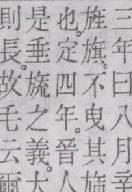 三年曰八月辛
旌旗。不曳其
也。定四年。晉人
是垂旒之義。大
則長。故毛云爾